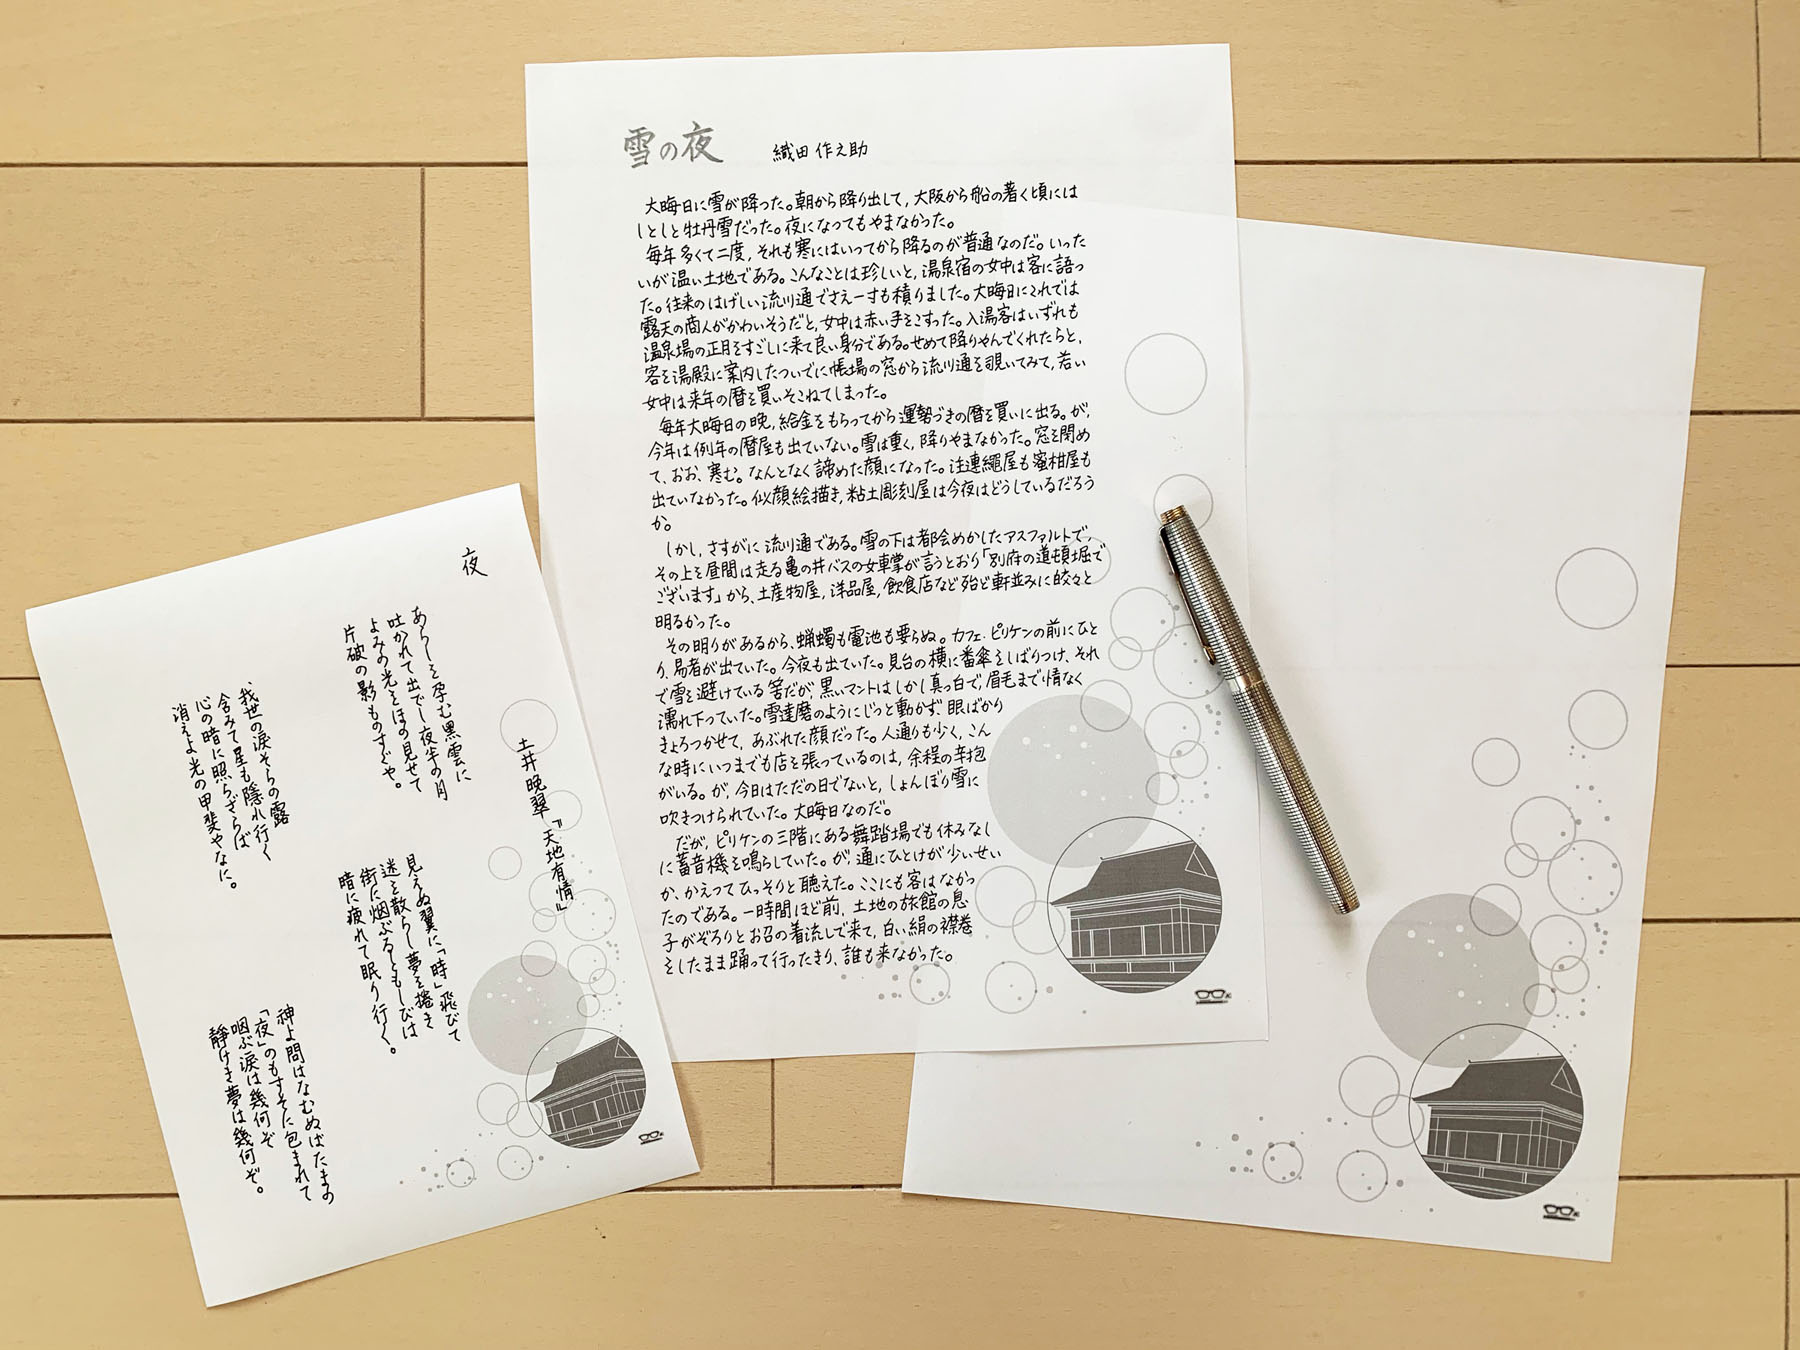 夜
土井晩翠『天地有情』
あらしを孕む黒雲に
吐かれて出でし夜半の月
よみの光をほの見せて
片破の影ものすごや。
見えぬ翼に「時」飛びて
迷を散らし夢を捲き
街に烟ぶるともしびは
暗に疲れて眠り行く。
我世の涙そらの露
含みて星も隱れ行く
心の暗に照らざらば
消えよ光の甲斐やなに。
神よ問はなむぬばたまの
「夜」のもすそに包まれて
咽ぶ涙は幾何ぞ
靜けき夢は幾何ぞ。
雪の夜
織田作之助
大晦日に雪が降った。朝から降り出して,大阪から船の著く頃には
しとしと牡丹雪だった。夜になってもやまなかった。
毎年多くて二度,それも寒にはいってから降るのが普通なのだ。いった
いが温い土地である。こんなことは珍しいと,温泉宿の女中は客に語っ
た。往来のはげしい流川通でさえ一寸も積りました。大晦日にこれでは
露天の商人がかわいそうだと,女中は赤い手をこすった。入湯客はいずれも
温泉場の正月をすごしに来て良い身分である。せめて降りやんでくれたらと,
客を湯殿に案内したついでに帳場の窓から流川通を覗いてみて,若い
女中は来年の暦を買いそこねてしまった。
毎年大晦日の晩,給金をもらってから運勢づきの暦を買いに出る。が,
今年は例年の暦屋も出ていない。雪は重く,降りやまなかった。窓を閉め
て、おお、寒む。なんとなく諦めた顔になった。注連繩屋も蜜柑屋も
出ていなかった。似顔絵描き,粘土彫刻屋は今夜はどうしているだろう
か。
しかし,さすがに流川通である。雪の下は都会めかしたアスファルトで,
その上を昼間は走る亀の井バスの女車掌が言うとおり「別府の道頓堀で
ございます」から、土産物屋,洋品屋,飲食店など殆ど軒並みに皎々と
明るかった。
その明りがあるから、蝋蠋も電池も要らぬ。カフェ・ピリケンの前にひと
り,易者が出ていた。今夜も出ていた。見台の横に番傘をしばりつけ、それ
で雪を避けている筈だが,黒いマントはしかし真っ白で,眉毛まで情なく
濡れ下っていた。雪達磨のようにじっと動かず,眼ばかり
きょろつかせて,あぶれた顔だった。人通りも少く,こん
な時にいつまでも店を張っているのは,余程の辛抱
がいる。が,今日はただの日でないと,しょんぼり雪に
吹きつけられていた。大晦日なのだ。
だが,ピリケンの三階にある舞踏場でも休みなし
に蓄音機を鳴らしていた。が,通にひとけが少いせい
か、かえってひっそりと聴えた。ここにも客はなかっ
たのである。一時間ほど前,土地の旅館の息
子がぞろりとお召の着流しで来て,白い絹の襟巻
をしたまま踊って行ったきり、誰も来なかった。